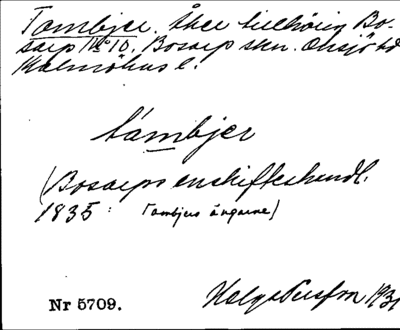 Tambjer. Åker tillhörig Bo-
sarp No 10. Bosarp skn. Onsjö hd
Malmöhus l.
támbjer
(Bosarps enskifteshandl.
1835: Tambjers ängarne)
Nr 5709.
Helge 1931